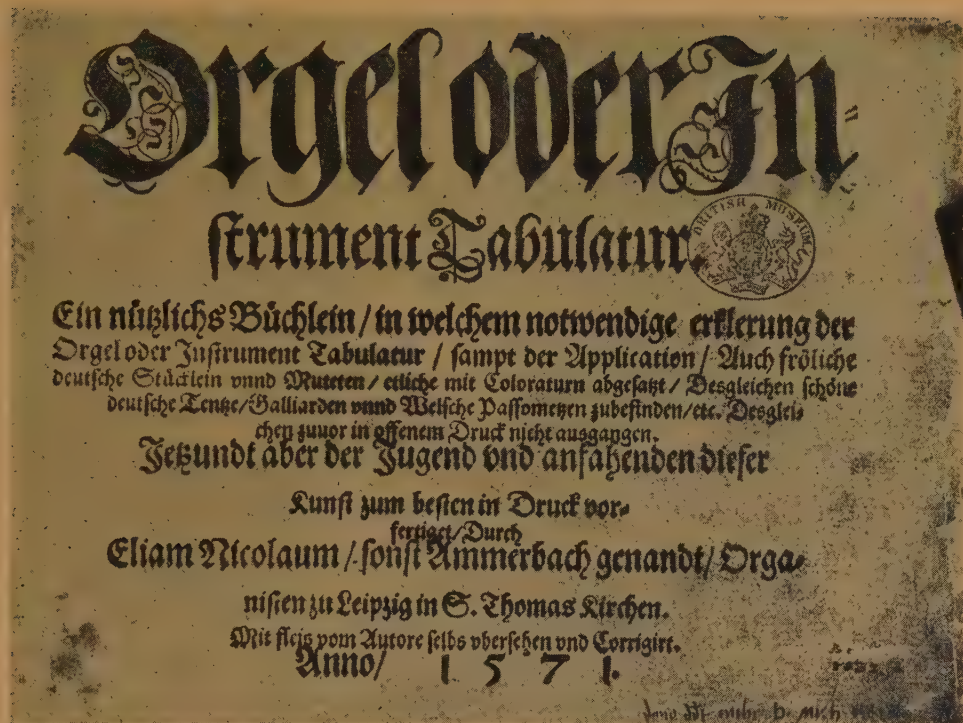 Orgel oder In=
strument Tabulatur.
BRITISH MUSEUM
Ein nützlichs Büchlein / in welchem notwendige erklerung der
Orgel oder Instrument Tabulatur / sampt der Application / Auch fröliche
deutsche Stücklein vnnd Muteten / etliche mit Coloraturn abgesatzt / Desgleichen schöne
deutsche Tentze / Galliarden vnnd Welsche Passometzen zubefinden / etc. Desglei=
chen zuuor in offenem Druck nicht ausgangen.
Jetzundt aber der Jugend vnd anfahenden dieser
Kunst zum besten in Druck vor=
fertiget / Durch
Eliam Nicolaum / sonst Ammerbach genandt / Orga=
nisten zu Leipzig in S. Thomas Kirchen.
Mit fleis vom Autore selbs vbersehen vnd Corrigirt.
Anno / 1571.